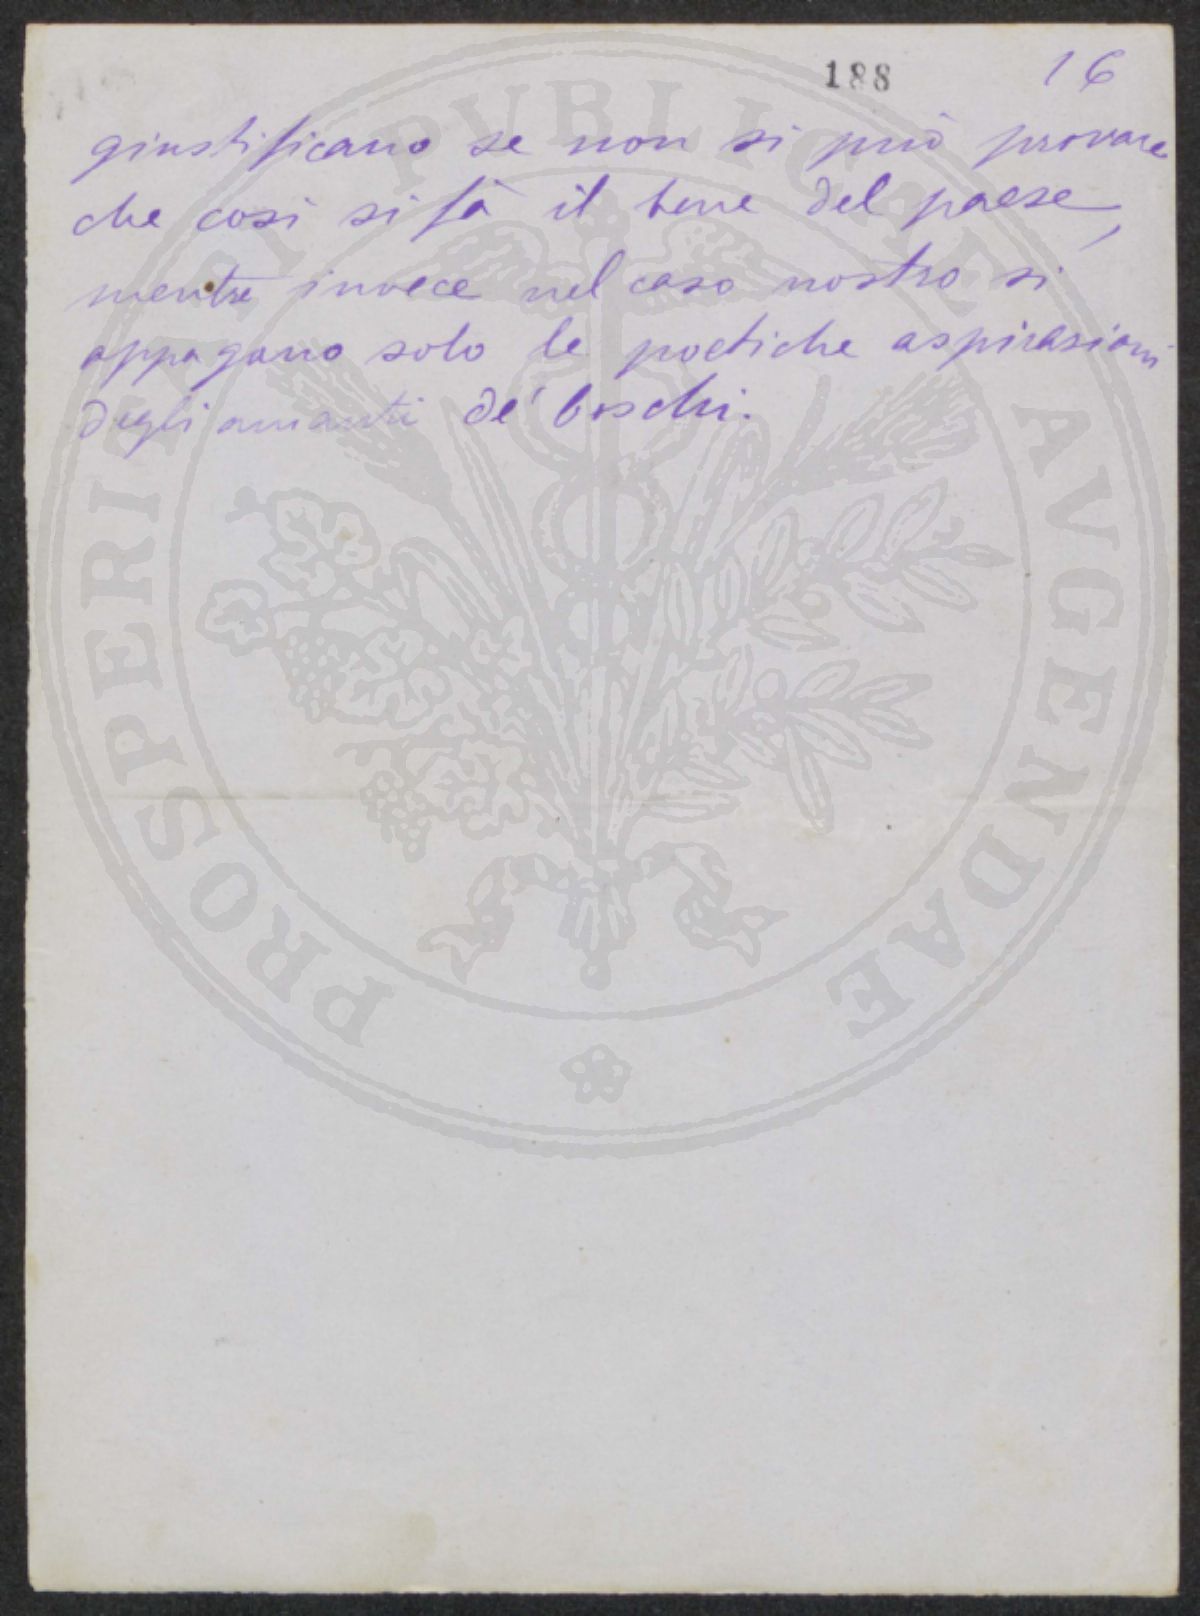 188 16
giustificano se non si può provare
che così si fà il bene del paese,
mentre invece nel caso nostro si
appagano solo le poetiche aspirasioni
degli amanti de' boschi.
PROSPERITATI PVBLICAE AVGENDAE